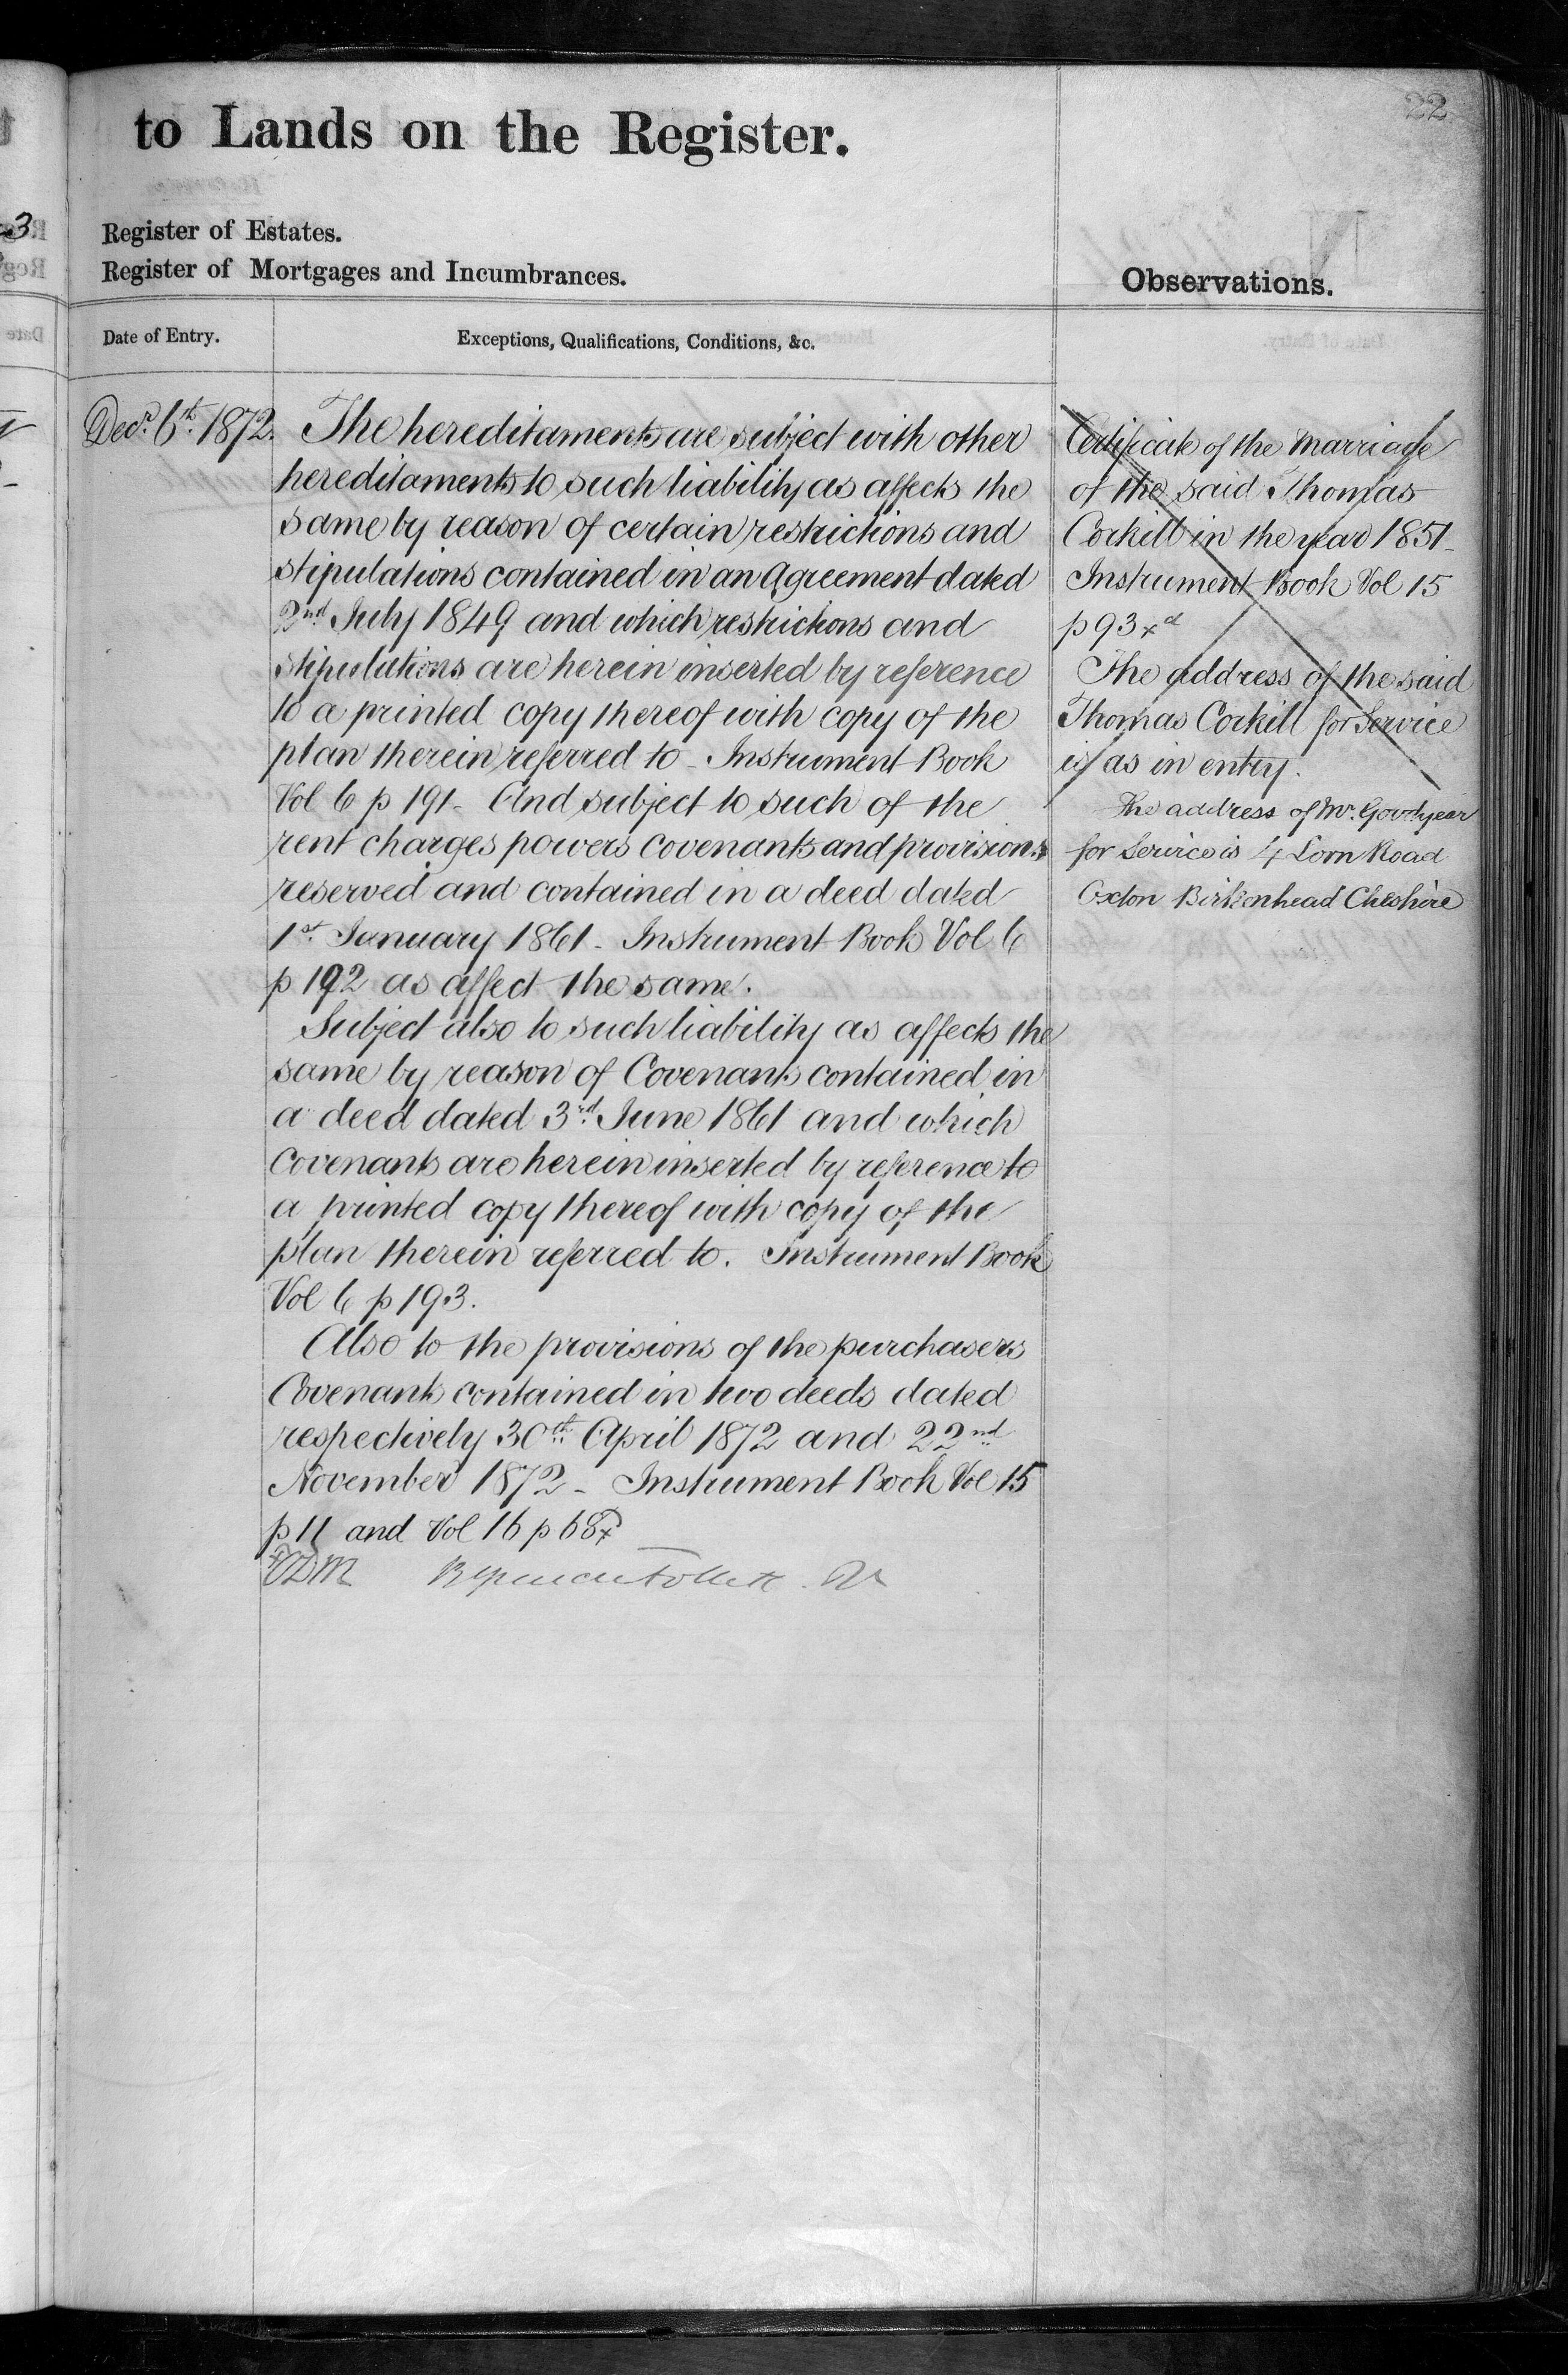 22
to Lands on the Register.
Register of Estates.
Register of Mortgages and Incumbrances.
Observations.
Date of Entry.
Exceptions, Qualifications, Conditions, &c.
Decr. 6th. 1872.
The hereditaments are subject with other
hereditaments to such liability as affects the
same by reason of certain restrictions and
stipulations contained in an Agreement dated
2nd July 1849 and which restrictions and
stipulations are herein inserted by reference
to a printed copy thereof with copy of the
plan therein referred to - Instrument Book
Vol 6 p 191 - And subject to such of the
rent charges powers covenants and provisions
reserved and contained in a deed dated
1st. January 1861 - Instrument Book Vol 6
p 192 as affect the same.
Subject also to such liability as affects the
same by reason of Covenants contained in
a deed dated 3rd. June 1861 and which
Covenants are herein inserted by reference to
a printed copy thereof with copy of the
plan therein referred to. Instrument Book
Vol 6 p 193.
Also to the provisions of the purchasers
Covenants contained in two deeds dated
respectively 30th. April 1872 and 22nd.
November 1872 - Instrument Book Vol 15
p 11 and Vol 16 p 68
Certificate of the Marriage
of the said Thomas
Corkill in the year 1851 -
Instrument Book Vol 15
p 93
The address of the said
Thomas Corkill for Service
is as in entry.
The address of Mr. Goodyear
for Service is 4 Lorn Road
Oxton Birkenhead Cheshire